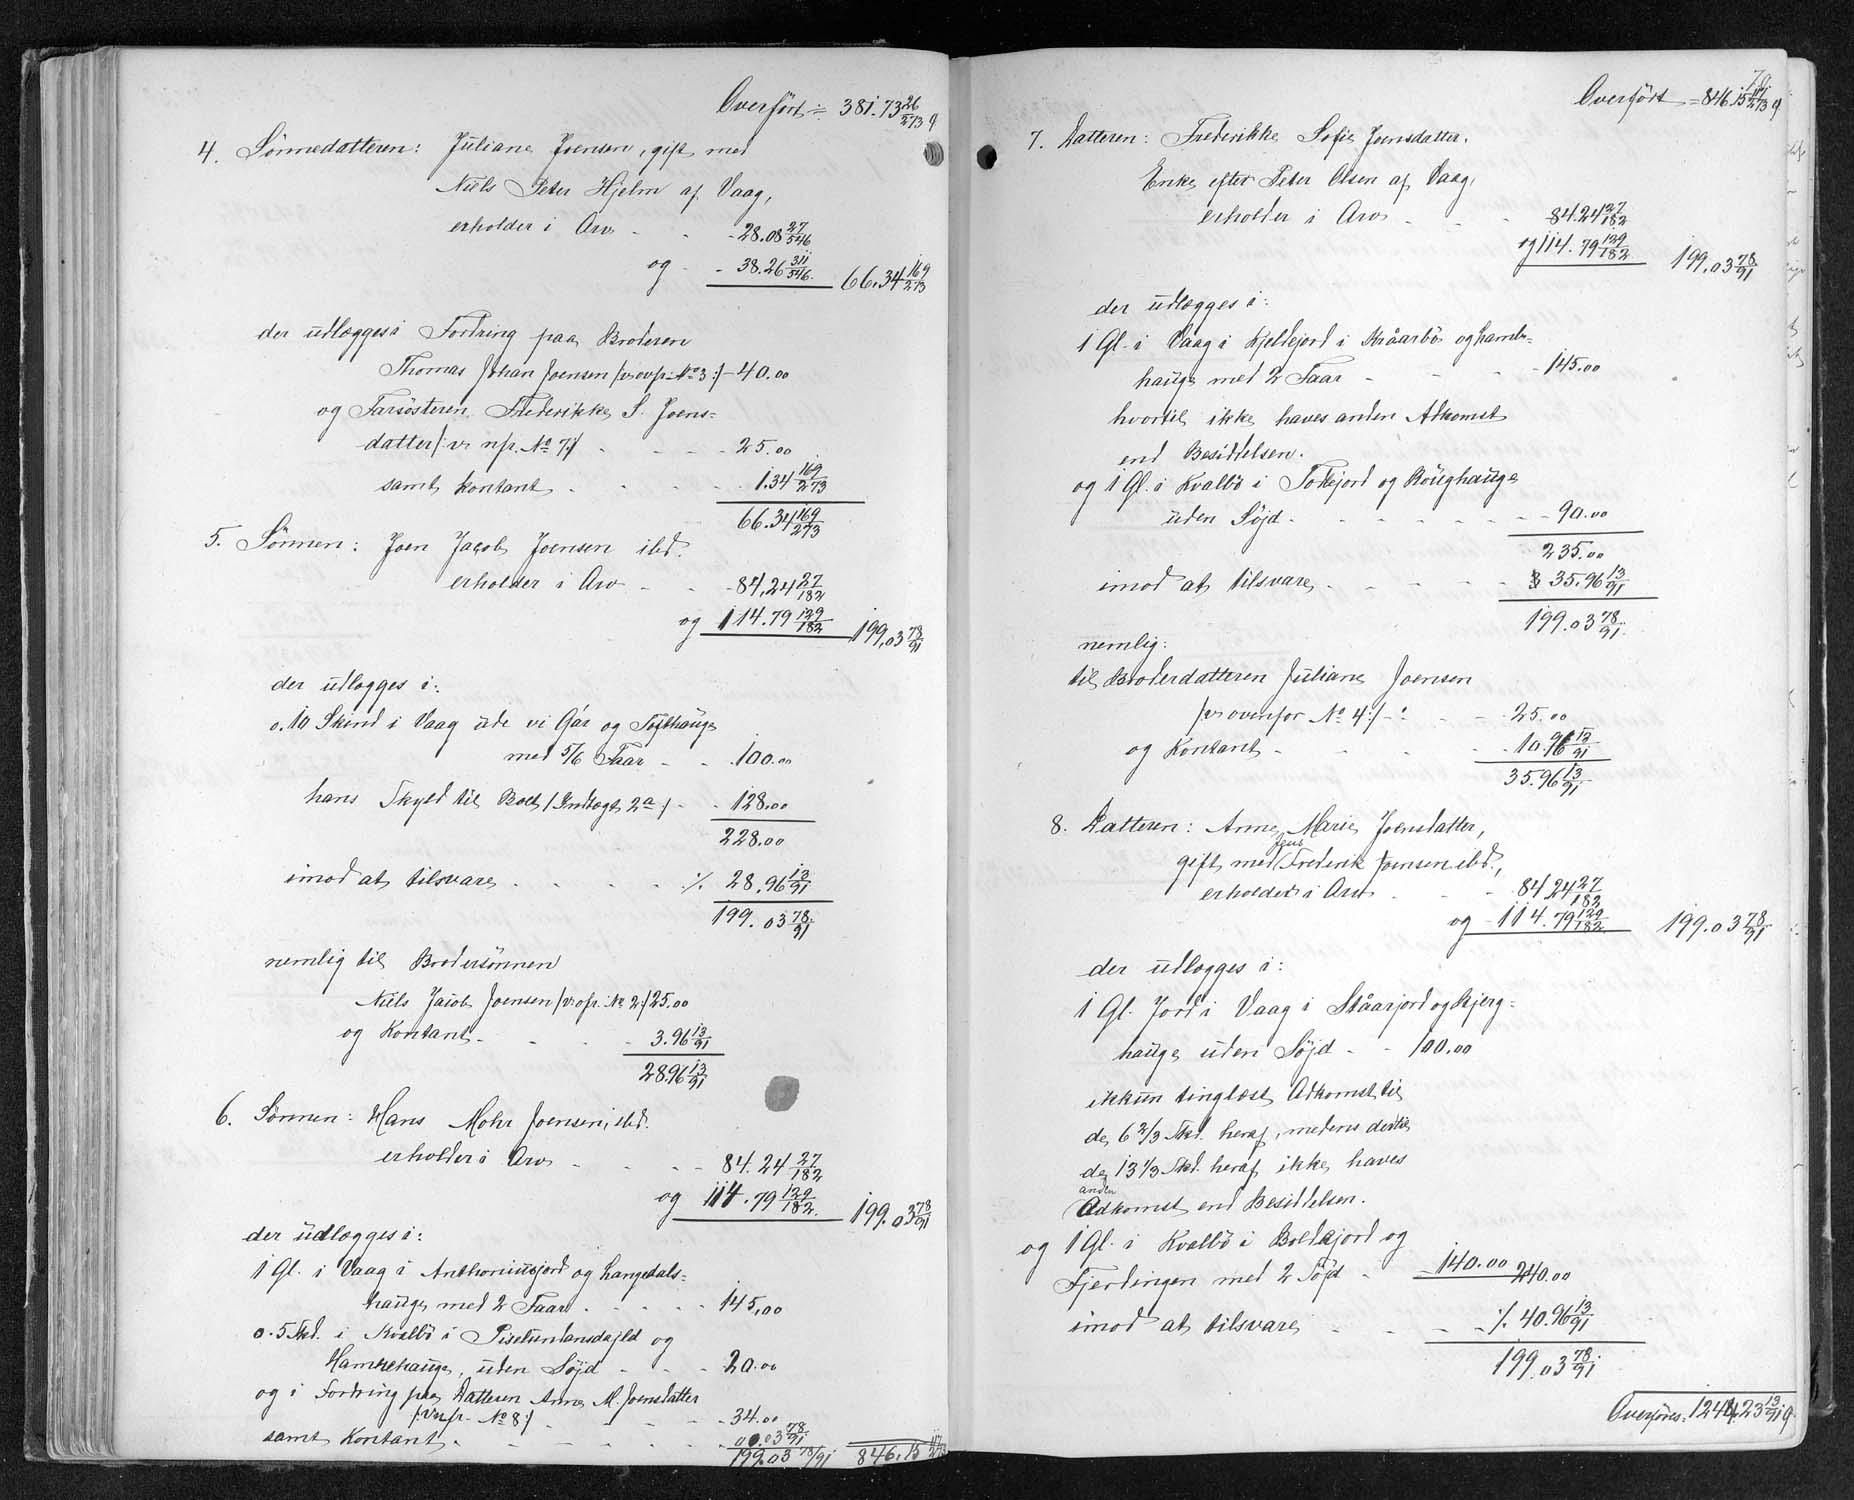 Overført ÷ 381.73 26/273 q
4. Sönnedatteren: Juliane Joensen, gift med
Niels Peter Hjelm af Vaag,
erholder i Arv - - - 28.08 27/546
og - - 38.26 311/546. 66.34 169/273
der udlægges i Fordring paa Broderen
Thomas Johan Joensen /: vs ovfr. No 3 :/ - 40.00
og Farsösteren Frederikke S. Joens=
datter /: vs nfr. No 7 :/ - - - 25.00
samt kontant - - - - 1.34 169/273
66.34 169/273
5. Sönnen: Joen Jacob Joensen ibd.
erholder i Arv - - - 84,24 27/182
og 114.79 129/182 199,03 78/91
der udlægges i:
0.10 Skind i Vaag ude vi Gár og Tofthauge
med 5/6 Faar - - 100.00
hans Skyld til Boet /: Indtægt 2a :/ - - 128.00
228.00
imod at tilsvare - - - - ./. 28.96 13/91
199.03 78/91
nemlig til Brodersönnen
Niels Jacob Joensen /: vs ofr. No 2 :/ 25.00
og Kontant - - - - 3.96 13/91
28.96 13/91
6. Sönnen: Hans Mohr Joensen, ibd.
erholder i Arv - - - - 84.24 27/182
og 114.79 129/182. 199.03 78/91
der udlægges i:
1 Gl. i Vaag i Anthoniusjord og Langedals=
hauge med 2 Faar - - - - 145,00
0.5 Skd. i Kvalbö i og
Hamrehauge, uden Söjd - - - 20.00
og i Fordring paa Datteren Anna M. Joensdatter
/: vs nfr. No 8 :/ - - - - 34.00
samt Kontant - - - - - 00.03 78/91
199.03 78/91 846.15 /273
70
Overført = 846.15 /273 q
7. Datteren: Frederikke Sofie Joensdatter.
Enke efter Peter Olsen af Vaag,
erholder i Arv - - - 84.24 27/182
og 114.79 129/182 199.03 78/91
der udlægges i:
1 Gl. i Vaag i Kjeldejord i Kråarbö og Lambe=
hauge med 2 Faar - - - - 145.00
hvortil ikke haves anden Adkomst
end Besiddelsen.
og 1 Gl. i Kvalbö i og
uden Söjd - - - - - - 90.00
235.00
imod at tilsvare - - - - - 35.96 13/91
199.03 78/91
nemlig:
til Broderdatteren Juliane Joensen
/: vs ovenfor No 4 :/ - - - 25.00
og Kontant - - - - 10.96 13/91
35.96 13/91
8. Datteren: Anne Marie Joensdatter,
gift med Jens Frederik Joensen ibd.,
erholder i Arv - - 84.24 27/182
og - 114.79 129/182. 199.03 78/91
der udlægges i:
1 Gl. Jord i Vaag i og Bjerg=
hauge uden Söjd - - 100.00
ikkun tinglæst Adkomst til
de 6 2/3 Skd. heraf, medens dertil
de 13 1/3 Skd. heraf ikke haves
anden
Adkomst end Besiddelsen.
og 1 Gl. i Kvalbö i og
Fjerdingen med 2 Söjd - - 140.00 240.00
imod at tilsvare - - - - ./. 40.96 13/91
199.03 78/91
Overføres = 1244,23 13/91 q